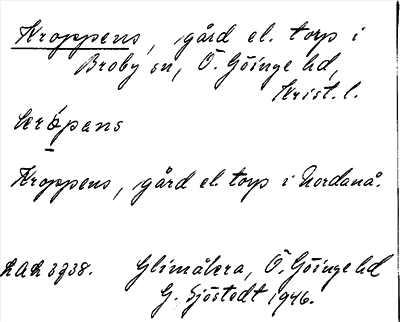 Kroppens, gård el. torp i
Broby sn, Ö. Göinge hd,
Krist. l.
kròpans
Kroppens, gård el. torp i Nordanå.
LAL 3938. Glimåkra, Ö. Göinge hd
G. Sjöstedt 1946.